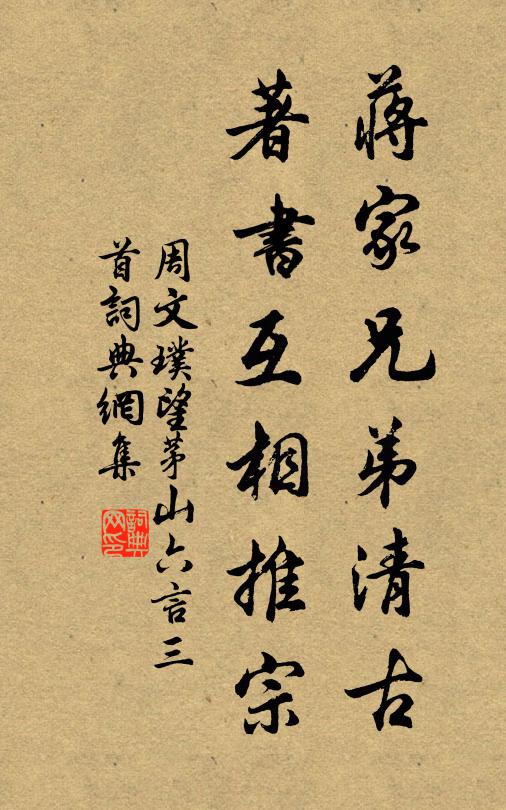 蔣家兄弟清古
著書互相推宗
周文璞望茅山六言三
首詞典網集
詞典
网印